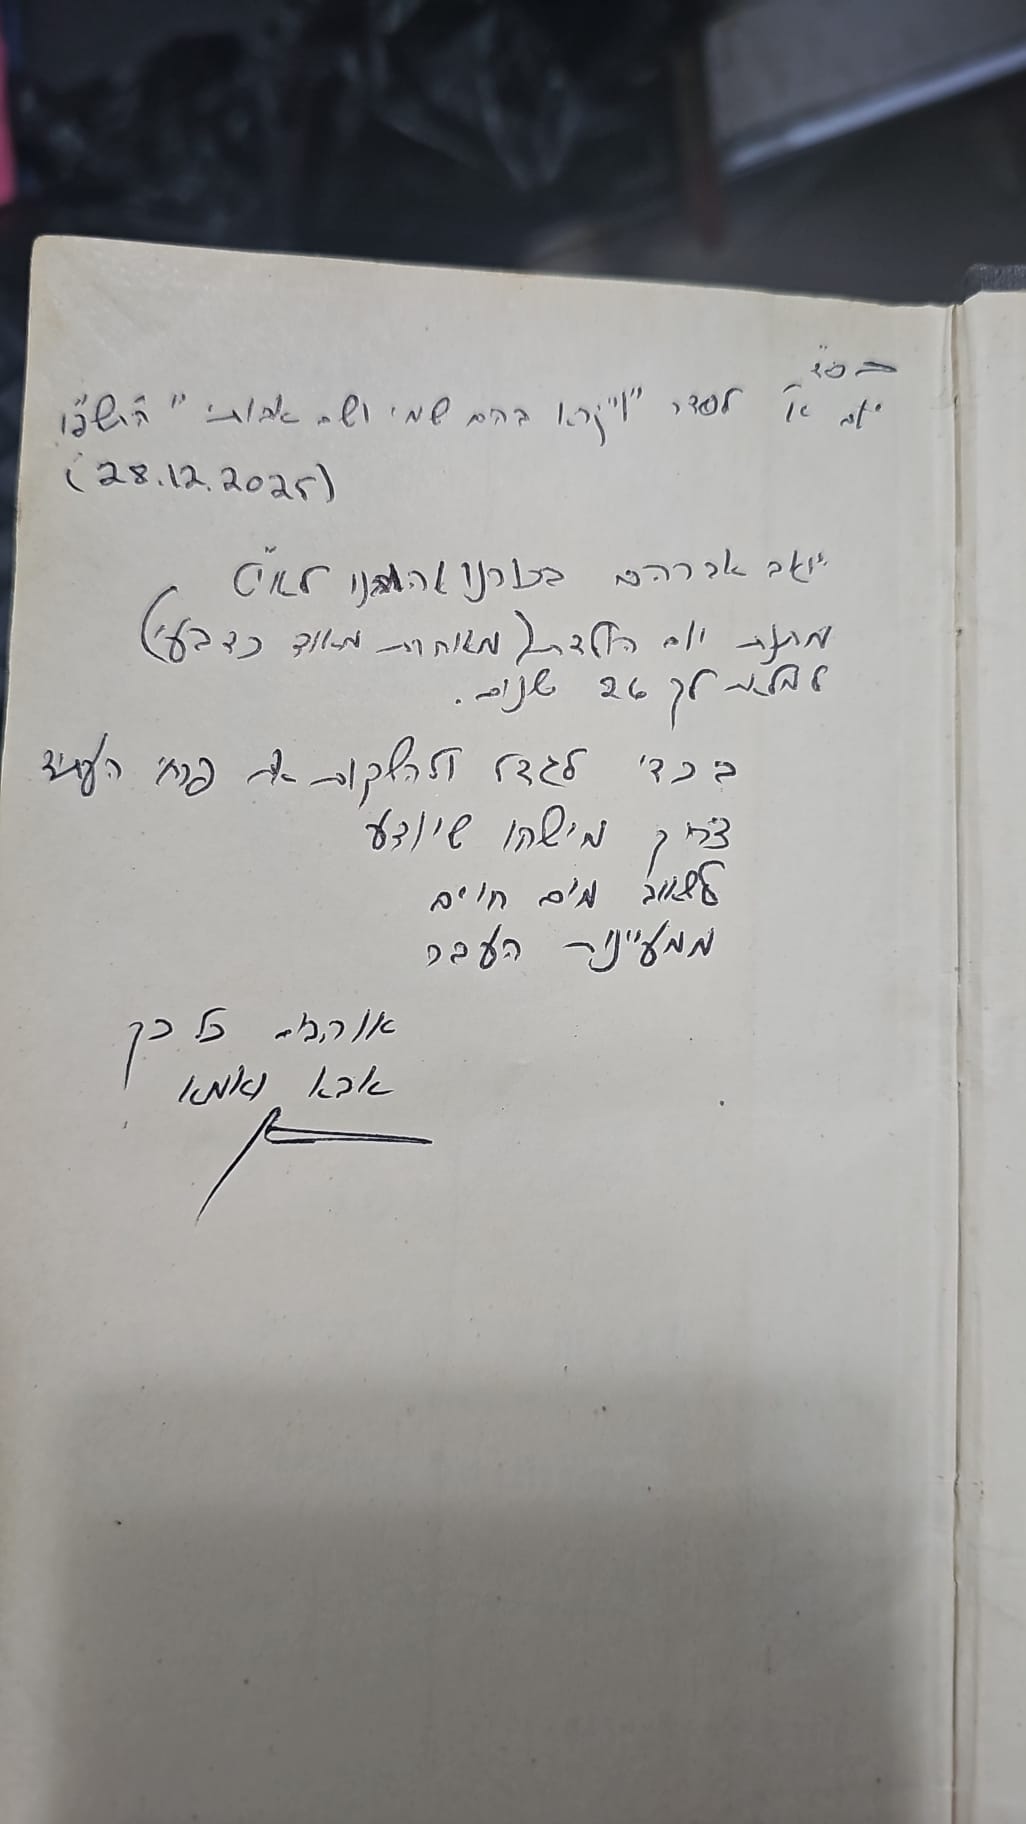 בסד
יום א' לסדר "ויקרא בהם שמי ושם אבותי" ה'תשפ"ו
(28.12.2025)
יואב אברהם בכורנו אהובנו לאי"ט
מתנת יום הולדת (מאוחרת מאוד כדבעי)
למלאת לך 26 שנים.
בכדי לגדל ולהשקות את פרחי העתיד
צריך מישהו שיודע
לשאוב מים חיים
ממעיינות העבר
אוהבים כל כך
אבא ואמא